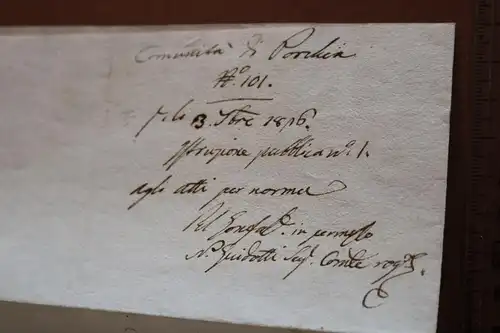 Comunità di Porchia
N.o 101.
li 3. 7bre 1816.
Istruzione pubblica n.o 1.
agli atti per norma
Il Gonfal.e in permesso
N.o Guidotti Seg.